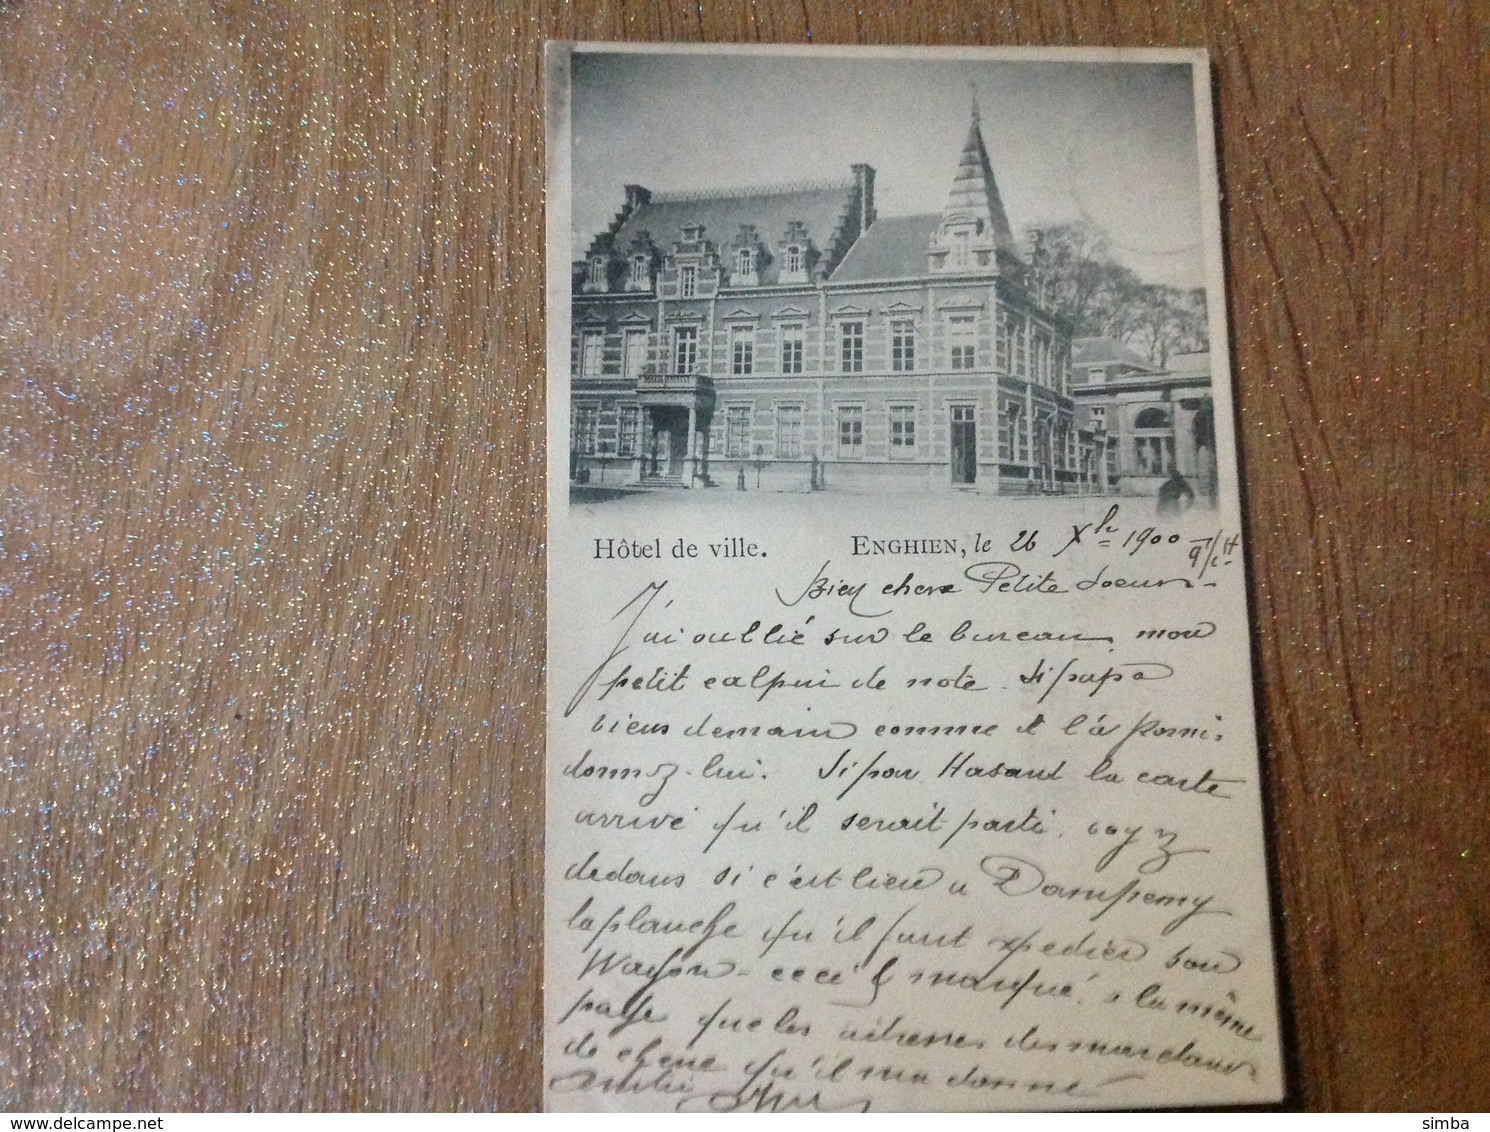 Hôtel de ville. ENGHIEN, le 26 Xbre 1900
Bien chere Petite soeur
J'ai oublié sur le bureau mon
petit calpin de note. Si papa
viens demain comme il l'a promis
donnez-lui. Si par Hasard la carte
arrive qu'il serait parti, voyez
dedans si c'est bien a Dampremy
la planche qu'il faut expedier son
Wagon - ceci est marqué a la même
page que les adresses des marchands
de chene qu'il m'a donné
delcampe.net
simba